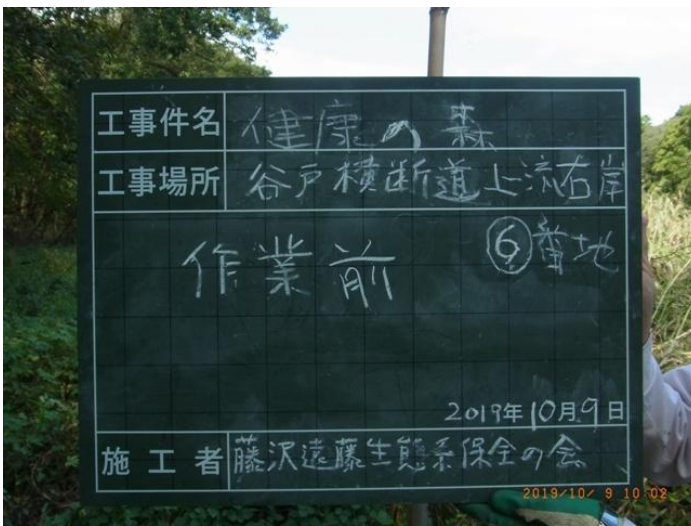 工事件名 健康の森
工事場所 谷戸横断道上流右岸
⑥番地
作業前
2019年10月9日
施工者 藤沢遠藤生態系保全の会
2019/10/ 9 10:02